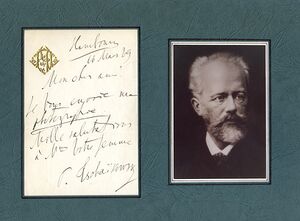 Hambourg
16 Mars 89
Mon cher ami!
Je vous envoie ma
photographie
Mille salutations
à Mme votre femme
P. Tschaïkovsky